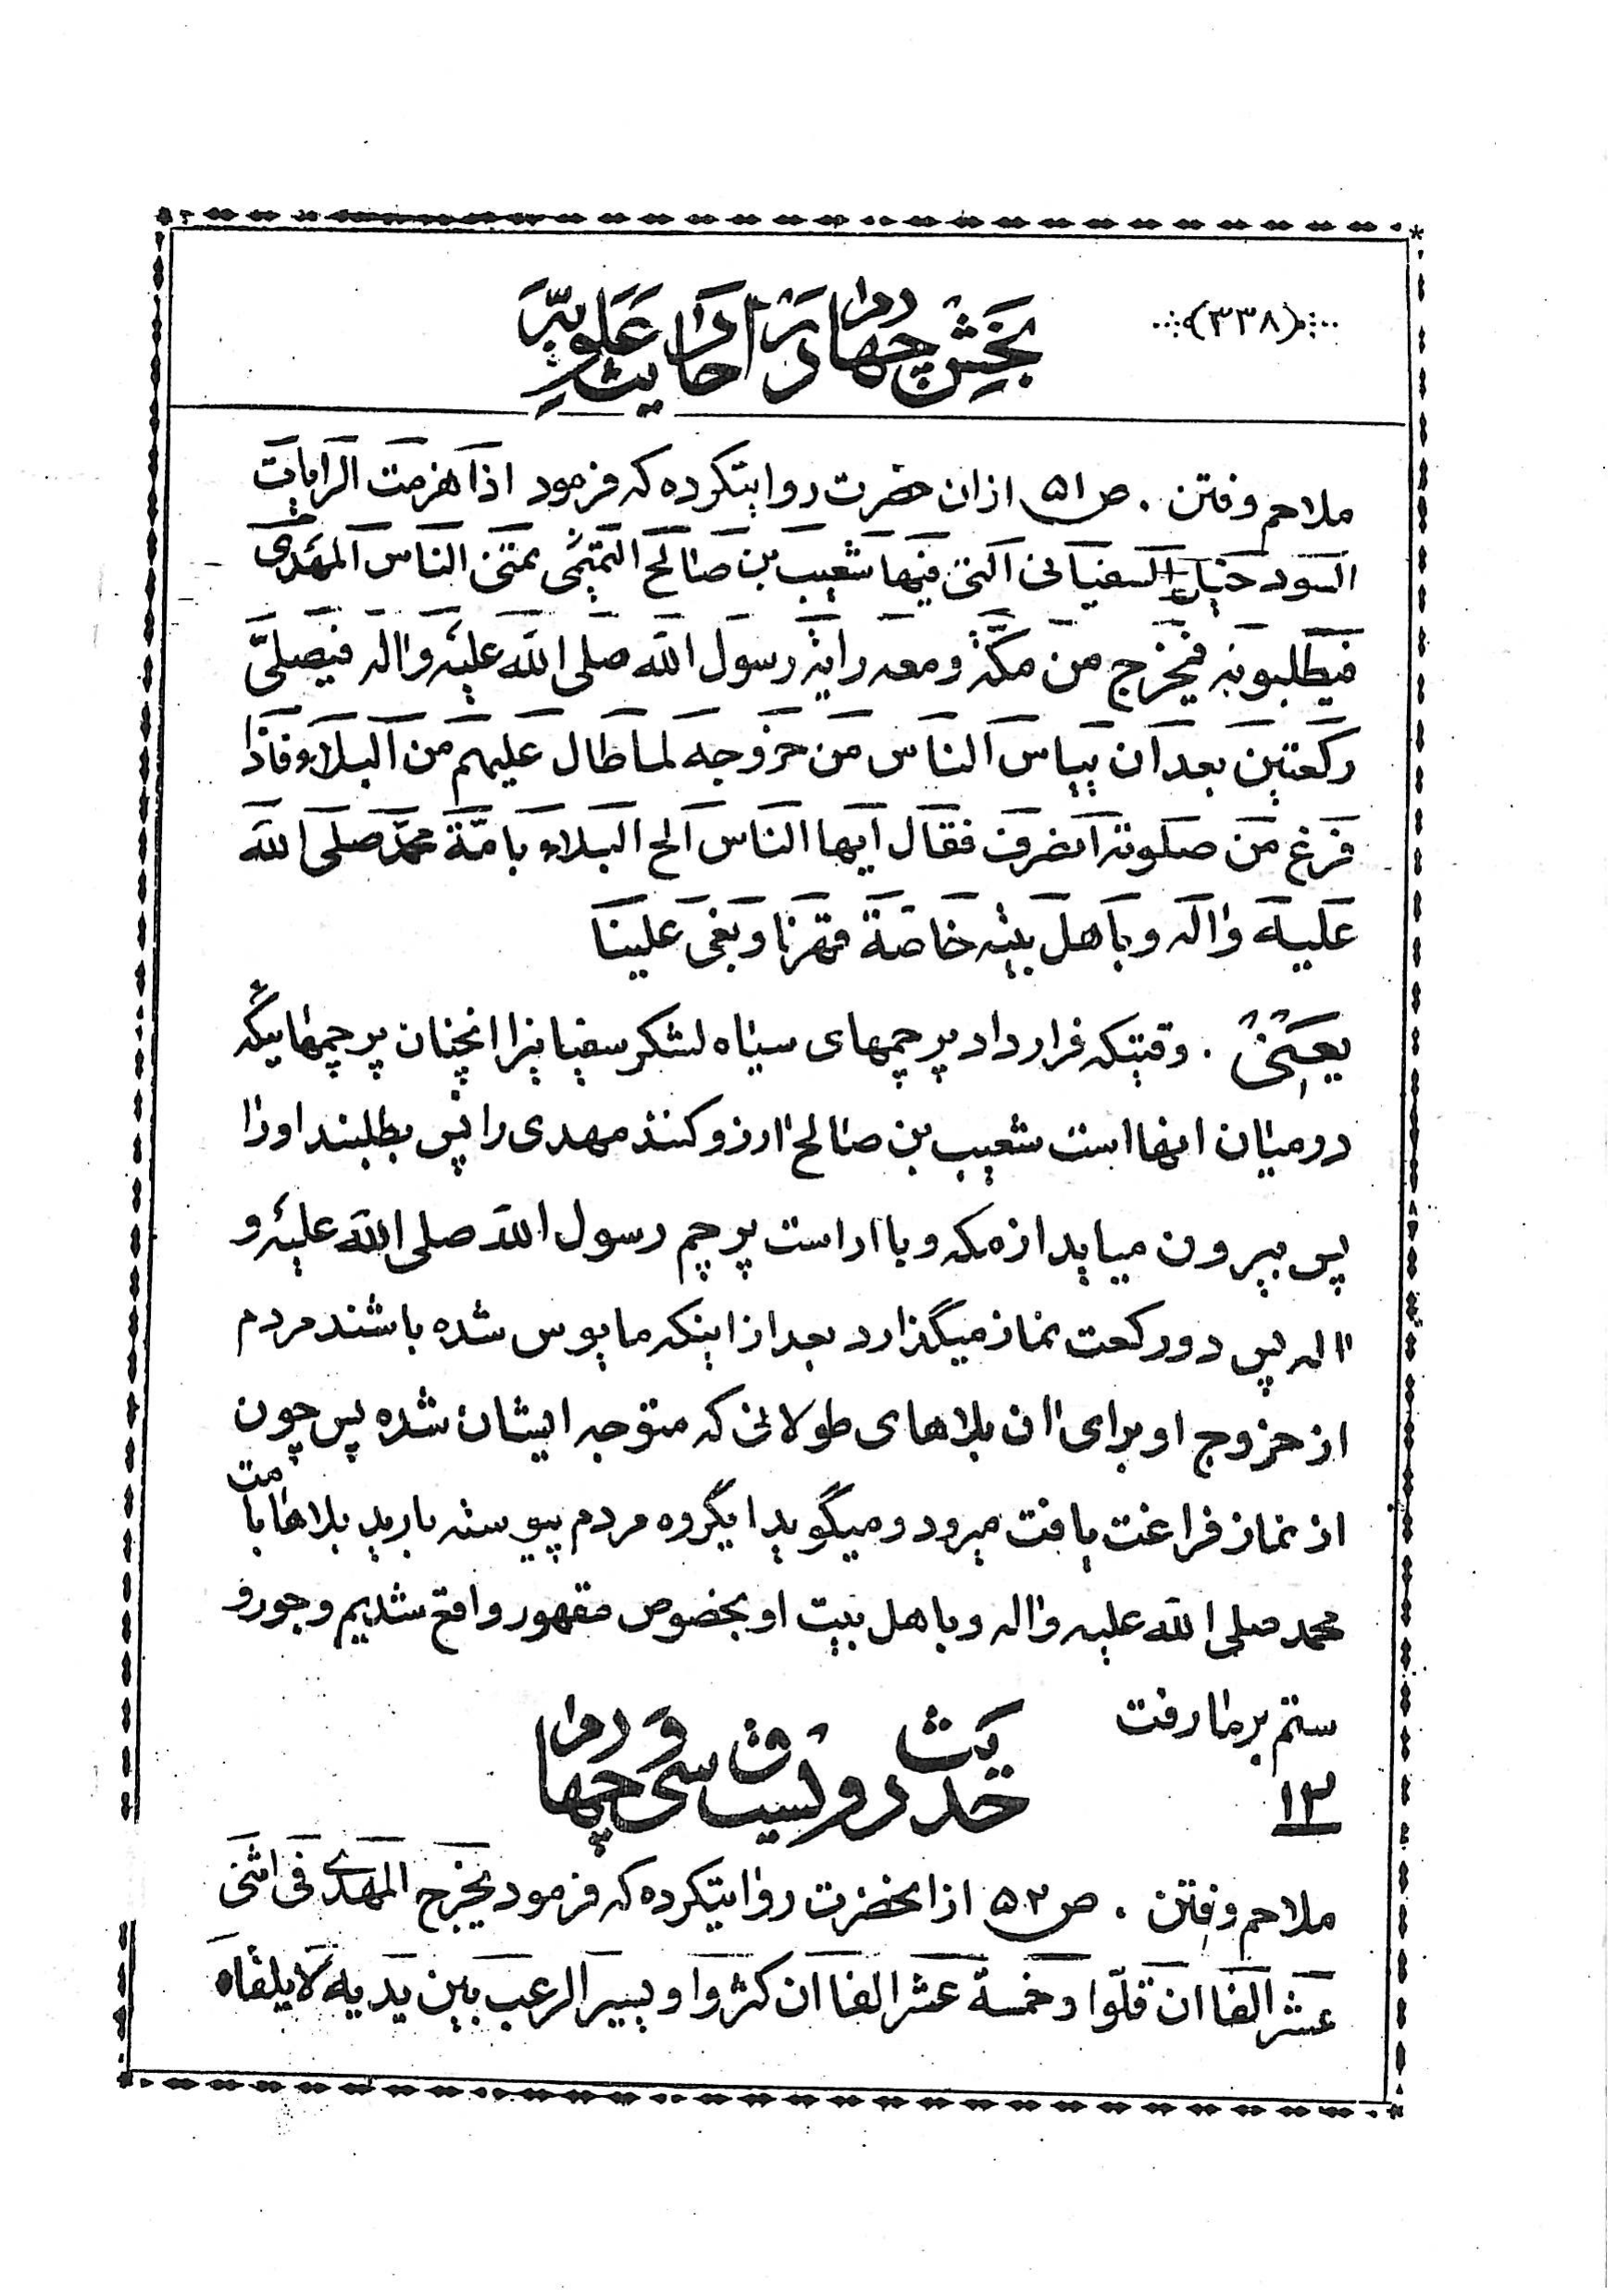 (٣٣٨)
بخش چهارم در احادیث علویّه
ملاحم و فتن . ص۵۱ از ان حضرت روایتکرده که فرمود اذا هزمت الرایات
السود خیل السفیانی التی فیها شعیب بن صالح التمیمی تمنی الناس المهدی
فیطلبونه فیخرج من مکّة و معه رایة رسول الله صلی الله علیه و اله فیصلّی
رکعتین بعد ان ییاس الناس من خروجه لما طال علیهم من البلاء فاذا
فرغ من صلوته انصرف فقال ایها الناس الح البلاء بامّة محمّد صلی الله
علیه و اله و باهل بیته خاصّة قهرنا و بغی علینا
یعنی . وقتیکه فرار داد پرچمهای سیاه لشکر سفیانیرا انچنان پرچمهاییکه
در میان انها است شعیب بن صالح ارزو کنند مهدی را پس بطلبند او را
پس بیرون میاید از مکه و با او است پرچم رسول الله صلی الله علیه و
اله پس دو رکعت نماز میگذارد بعد از اینکه مایوس شده باشند مردم
از خروج او برای ان بلاهای طولانی که متوجه ایشان شده پس چون
از نماز فراغت یافت میرود و میگوید ایگروه مردم پیوسته بارید بلاها با مت
محمد صلی الله علیه و اله و باهل بیت او بخصوص مقهور واقع شدیم و جور و
ستم بر ما رفت
١٣ حدیث دویست و سی و چهارم
ملاحم و فتن . ص ۵۲ از انحضرت روایتکرده که فرمود یخرج المهدی فی اثنی
عشر الفا ان قلّوا و خمسة عشر الفا ان کثروا و یسیر الرعب بین یدیه لا یلقاه